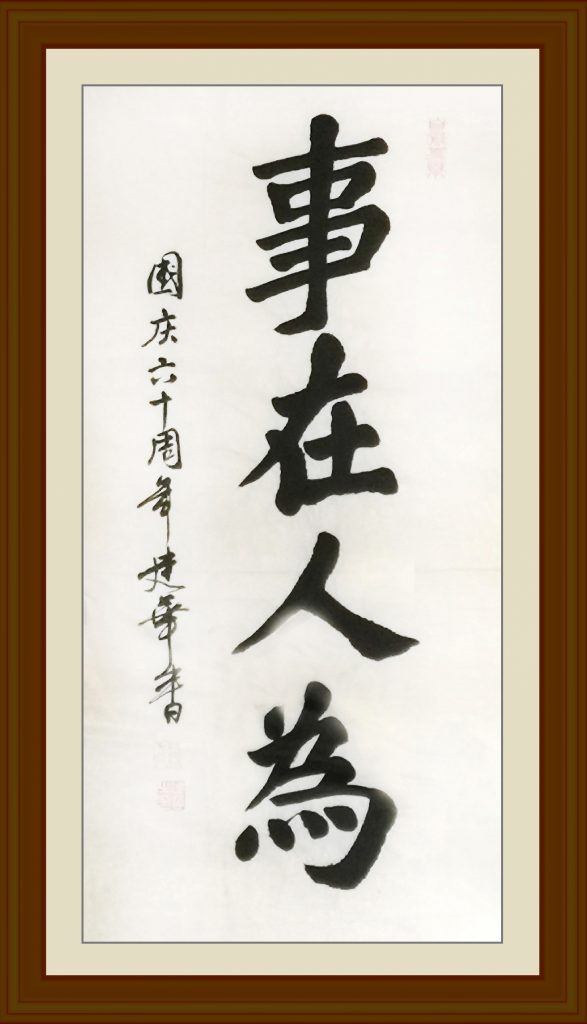 事在人為
國庆六十周年建華书